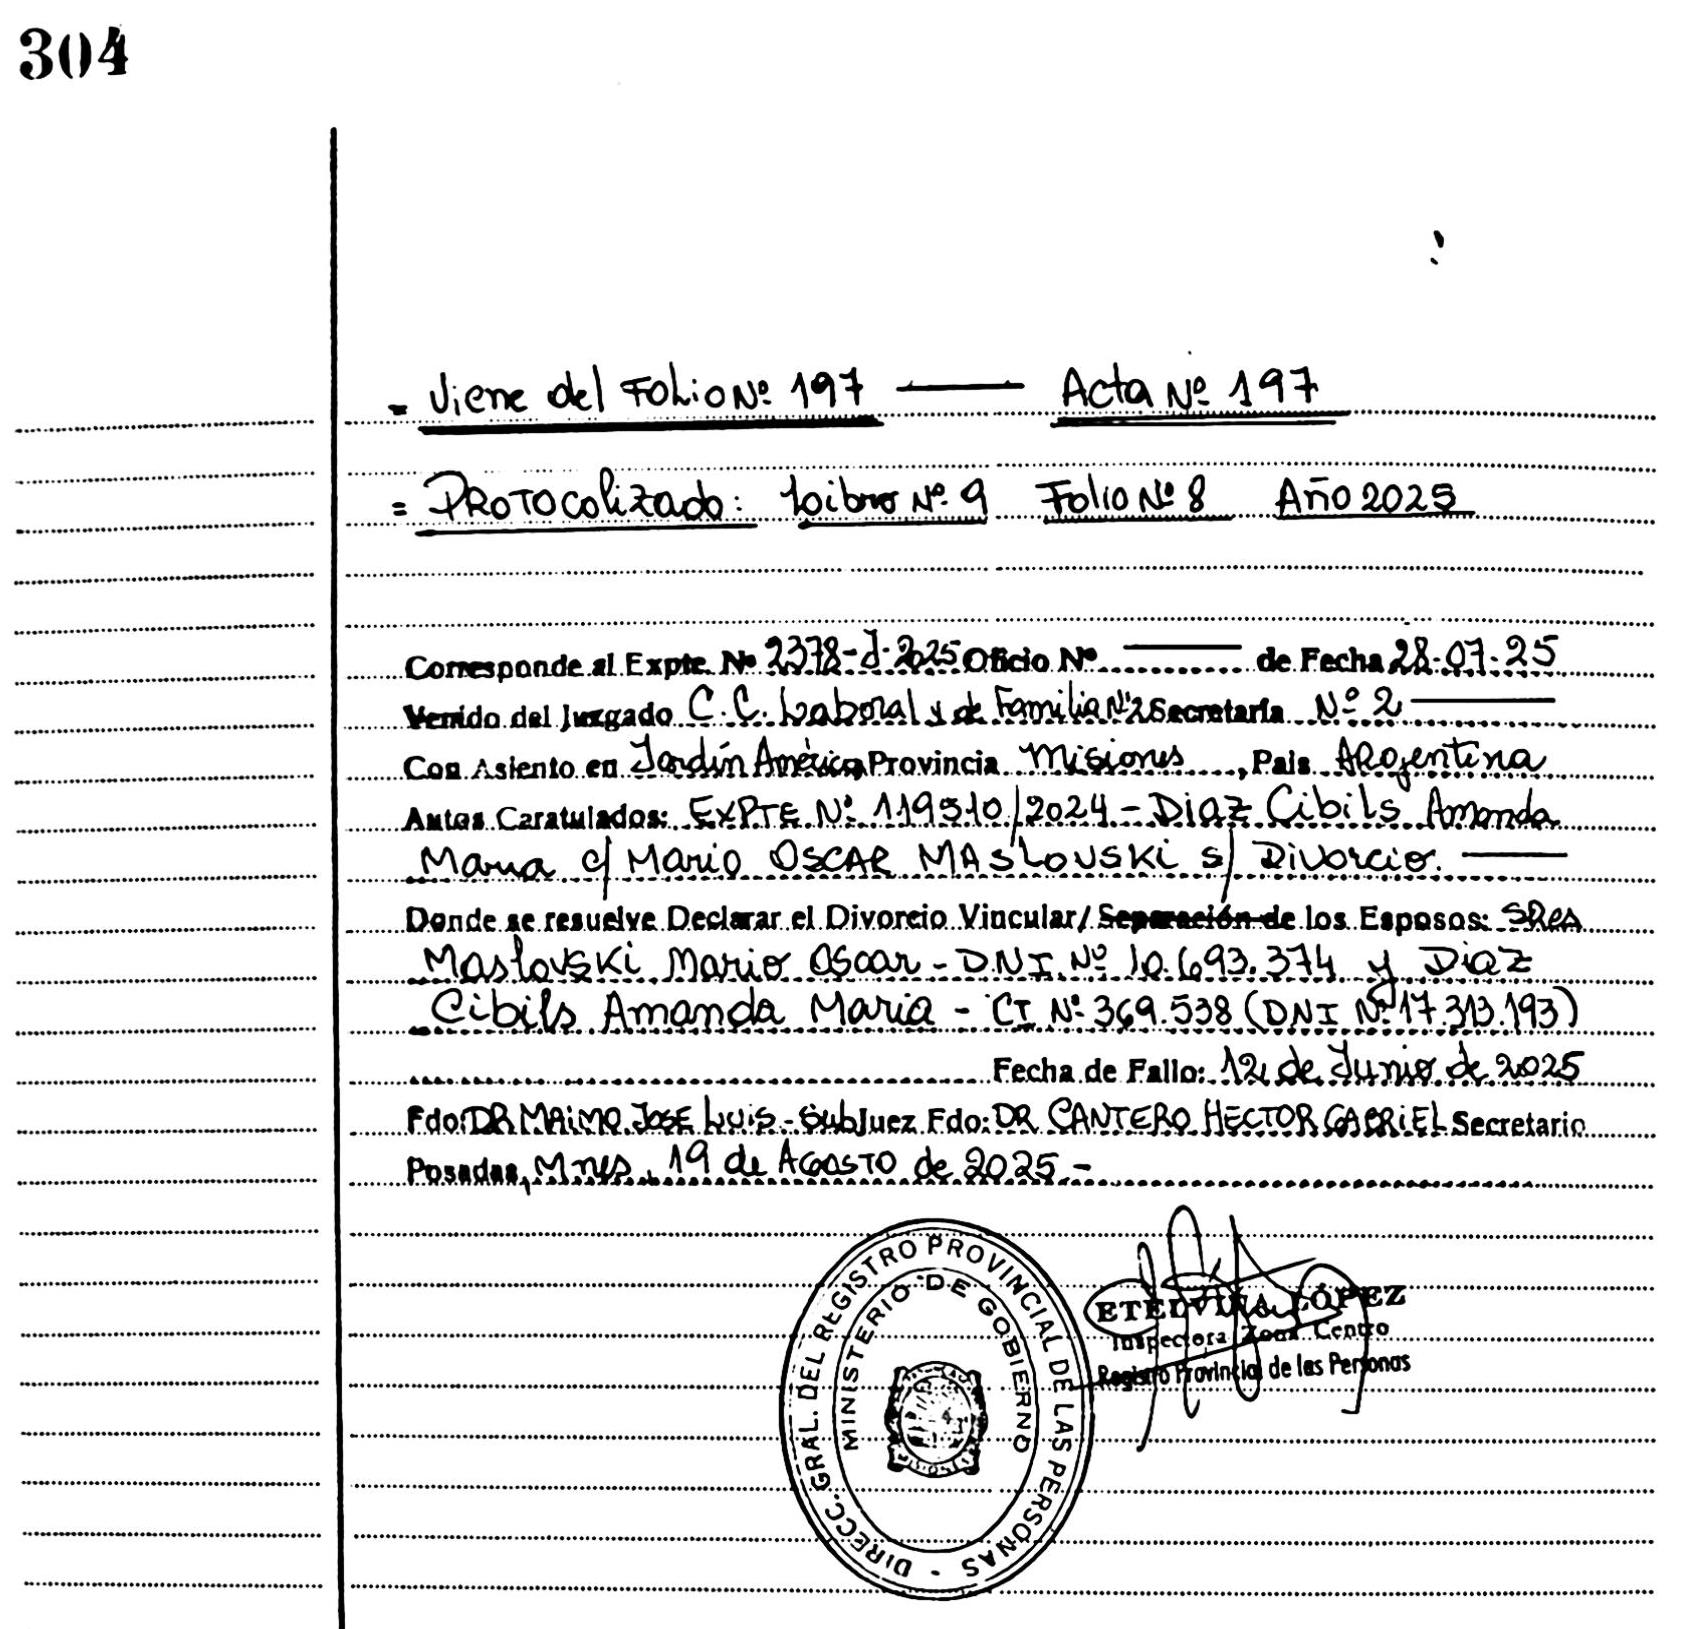 304
= Viene del Folio Nº 197 — Acta Nº 197
= Protocolizado: Libro Nº 9 Folio Nº 8 Año 2025
Corresponde al Expte Nº 2378-J-2025 Oficio Nº — de Fecha 28-07-25
Venido del Juzgado C.C. Laboral y de Familia Nº2 Secretaria Nº 2 —
Con Asiento en Jardín América, Provincia Misiones, Pais Argentina
Autos Caratulados: EXPTE Nº 119510/2024 - Diaz Cibils Amanda
Maria c/ Mario OSCAR MASLOVSKI s/ Divorcio. —
Donde se resuelve Declarar el Divorcio Vincular/ Separación de los Esposos: SRes
Maslovski Mario Oscar - D.N.I. Nº 10.693.374 y Diaz
Cibils Amanda Maria - CI Nº 369.538 (DNI Nº 17.313.193)
Fecha de Fallo: 12 de Junio de 2025
Fdo: DR MAIMO JOSE LUIS - Sub Juez Fdo: DR CANTERO HECTOR GABRIEL Secretario
Posadas, Mnes, 19 de AGOSTO de 2025 -
DIRECC. GRAL. DEL REGISTRO PROVINCIAL DE LAS PERSONAS
MINISTERIO DE GOBIERNO
ETELVINA LÓPEZ
Inspectora Zona Centro
Registro Provincial de las Personas